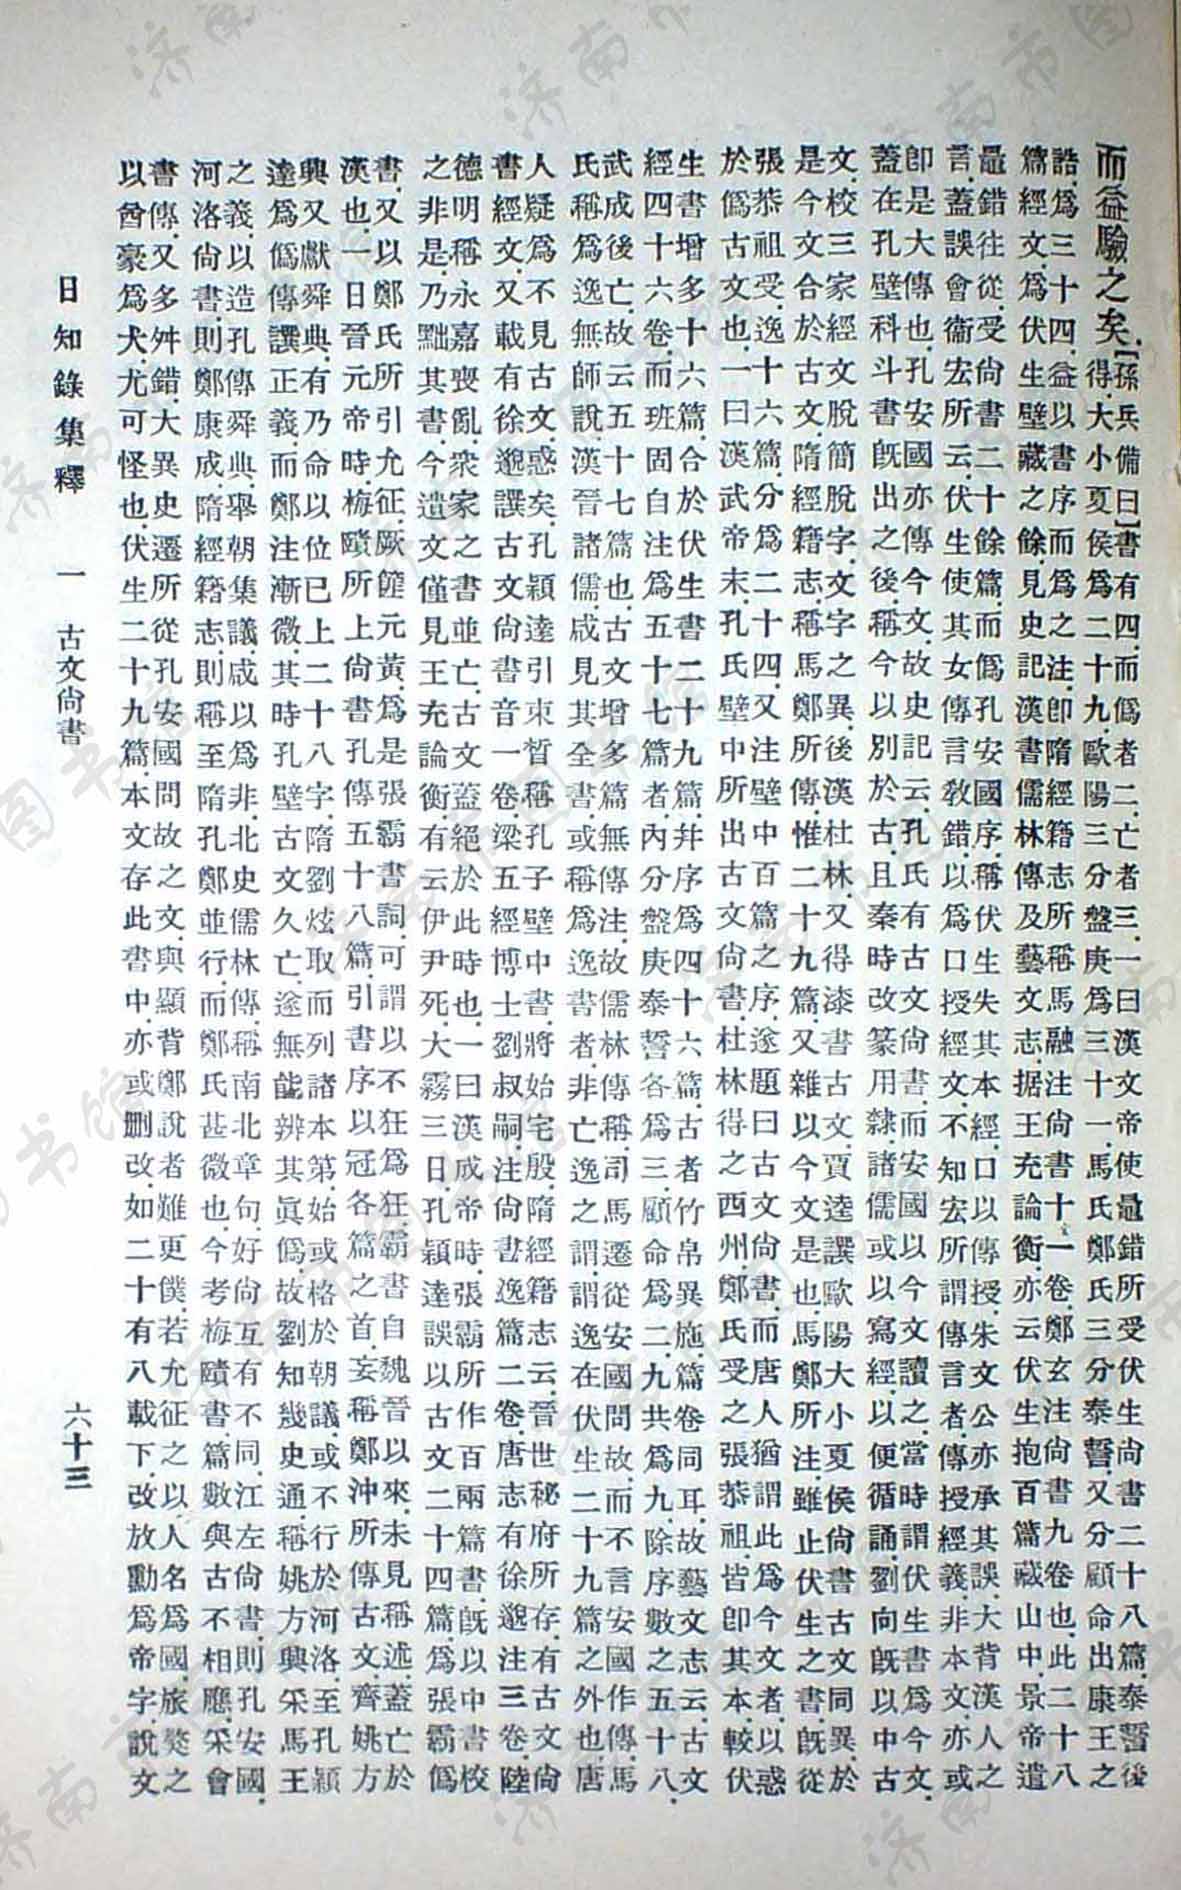 而益驗之矣.[孫兵備曰]書有四.而僞者二.亡者三.一曰漢文帝使鼂錯所受伏生尚書二十八篇.泰誓後
得.大小夏侯爲二十九.歐陽三分盤庚爲三十一.馬氏鄭氏三分泰誓.又分顧命出康王之
誥.爲三十四.益以書序而爲之注.卽隋經籍志所稱馬融注尚書十一卷.鄭玄注尚書九卷也.此二十八
篇經文爲伏生壁藏之餘.見史記漢書儒林傳及藝文志.据王充論衡.亦云伏生抱百篇藏山中.景帝遣
鼂錯往從受尚書二十餘篇.而僞孔安國序.稱伏生失其本經.口以傳授.朱文公亦承其誤.大背漢人之
言.蓋誤會衞宏所云.伏生使其女傳言教錯.以爲口授經文.不知宏所謂傳言者.傳授經義.非本文.亦或
卽是大傳也.孔安國亦傳今文.故史記云.孔氏有古文尚書.而安國以今文讀之.當時謂伏生書爲今文.
蓋在孔壁科斗書旣出之後.稱今以別於古.且秦時改篆用隸.諸儒或以寫經.以便循誦.劉向旣以中古
文.校三家經文.脫簡脫字.文字之異.後漢杜林.又得漆書古文.賈逵譔歐陽大小夏侯尚書古文同異.於
是今文合於古文.隋經籍志.稱馬鄭所傳.惟二十九篇.又雜以今文是也.馬鄭所注.雖止伏生之書.旣從
張恭祖受逸十六篇.分爲二十四.又注壁中百篇之序.遂題曰古文尚書.而唐人猶謂此爲今文者.以惑
於僞古文也.一曰漢武帝末.孔氏壁中所出古文尚書.杜林得之西州.鄭氏受之張恭祖.皆卽其本.較伏
生書增多十六篇.合於伏生書二十九篇.幷序爲四十六篇.古者竹帛異施.篇卷同耳.故藝文志云.古文
經四十六卷.而班固自注爲五十七篇者.內分盤庚泰誓各爲三.顧命爲二.九共爲九.除序數之五十八.
武成後亡.故云五十七篇也.古文增多篇.無傳注.故儒林傳稱.司馬遷從安國問故.而不言安國作傳.馬
氏稱爲逸.無師說.漢晉諸儒.咸見其全書.或稱爲逸書者.非亡逸之謂.謂逸在伏生二十九篇之外也.唐
人疑爲不見古文.惑矣.孔穎達引束晳稱.孔子壁中書.將始宅殷.隋經籍志云.晉世秘府所存.有古文尚
書經文.又載有徐邈譔古文尚書音一卷.梁五經博士劉叔嗣.注尚書逸篇二卷.唐志有徐邈注三卷.陸
德明稱永嘉喪亂.衆家之書並亡.古文蓋絕於此時也.一曰漢成帝時.張霸所作百兩篇書.旣以中書校
之非是.乃黜其書.今遺文僅見王充論衡.有云伊尹死.大霧三日.孔穎達誤以古文二十四篇.爲張霸僞
書.又以鄭氏所引允征.厥篚元黃.爲是張霸書詞.可謂以不狂爲狂.霸書自魏晉以來.未見稱述.蓋亡於
漢也.一日晉元帝時.梅賾所上尚書孔傳五十八篇.引書序以冠各篇之首.妄稱鄭沖所傳古文.齊姚方
興又獻舜典.有乃命以位已上二十八字.隋劉炫取而列諸本第.始或格於朝議.或不行於河洛.至孔穎
達爲僞傳譔正義.而鄭注漸微.其時孔壁古文久亡.遂無能辨其眞僞.故劉知幾史通.稱姚方興采馬王
之義.以造孔傳舜典.舉朝集議.咸以爲非.北史儒林傳.稱南北章句.好尚互有不同.江左尚書.則孔安國.
河洛尚書.則鄭康成.隋經籍志.則稱至隋孔鄭並行.而鄭氏甚微也.今考梅賾書.篇數與古不相應.采會
書傳.又多舛錯.大異史遷所從孔安國問故之文.與顯背鄭說者.難更僕.若允征之以人名爲國.旅獒之
以酋豪爲犬.尤可怪也.伏生二十九篇.本文存此書中.亦或刪改.如二十有八載下.改放勳爲帝字.說文
日知錄集釋 一 古文尚書 六十三
济南市图书馆